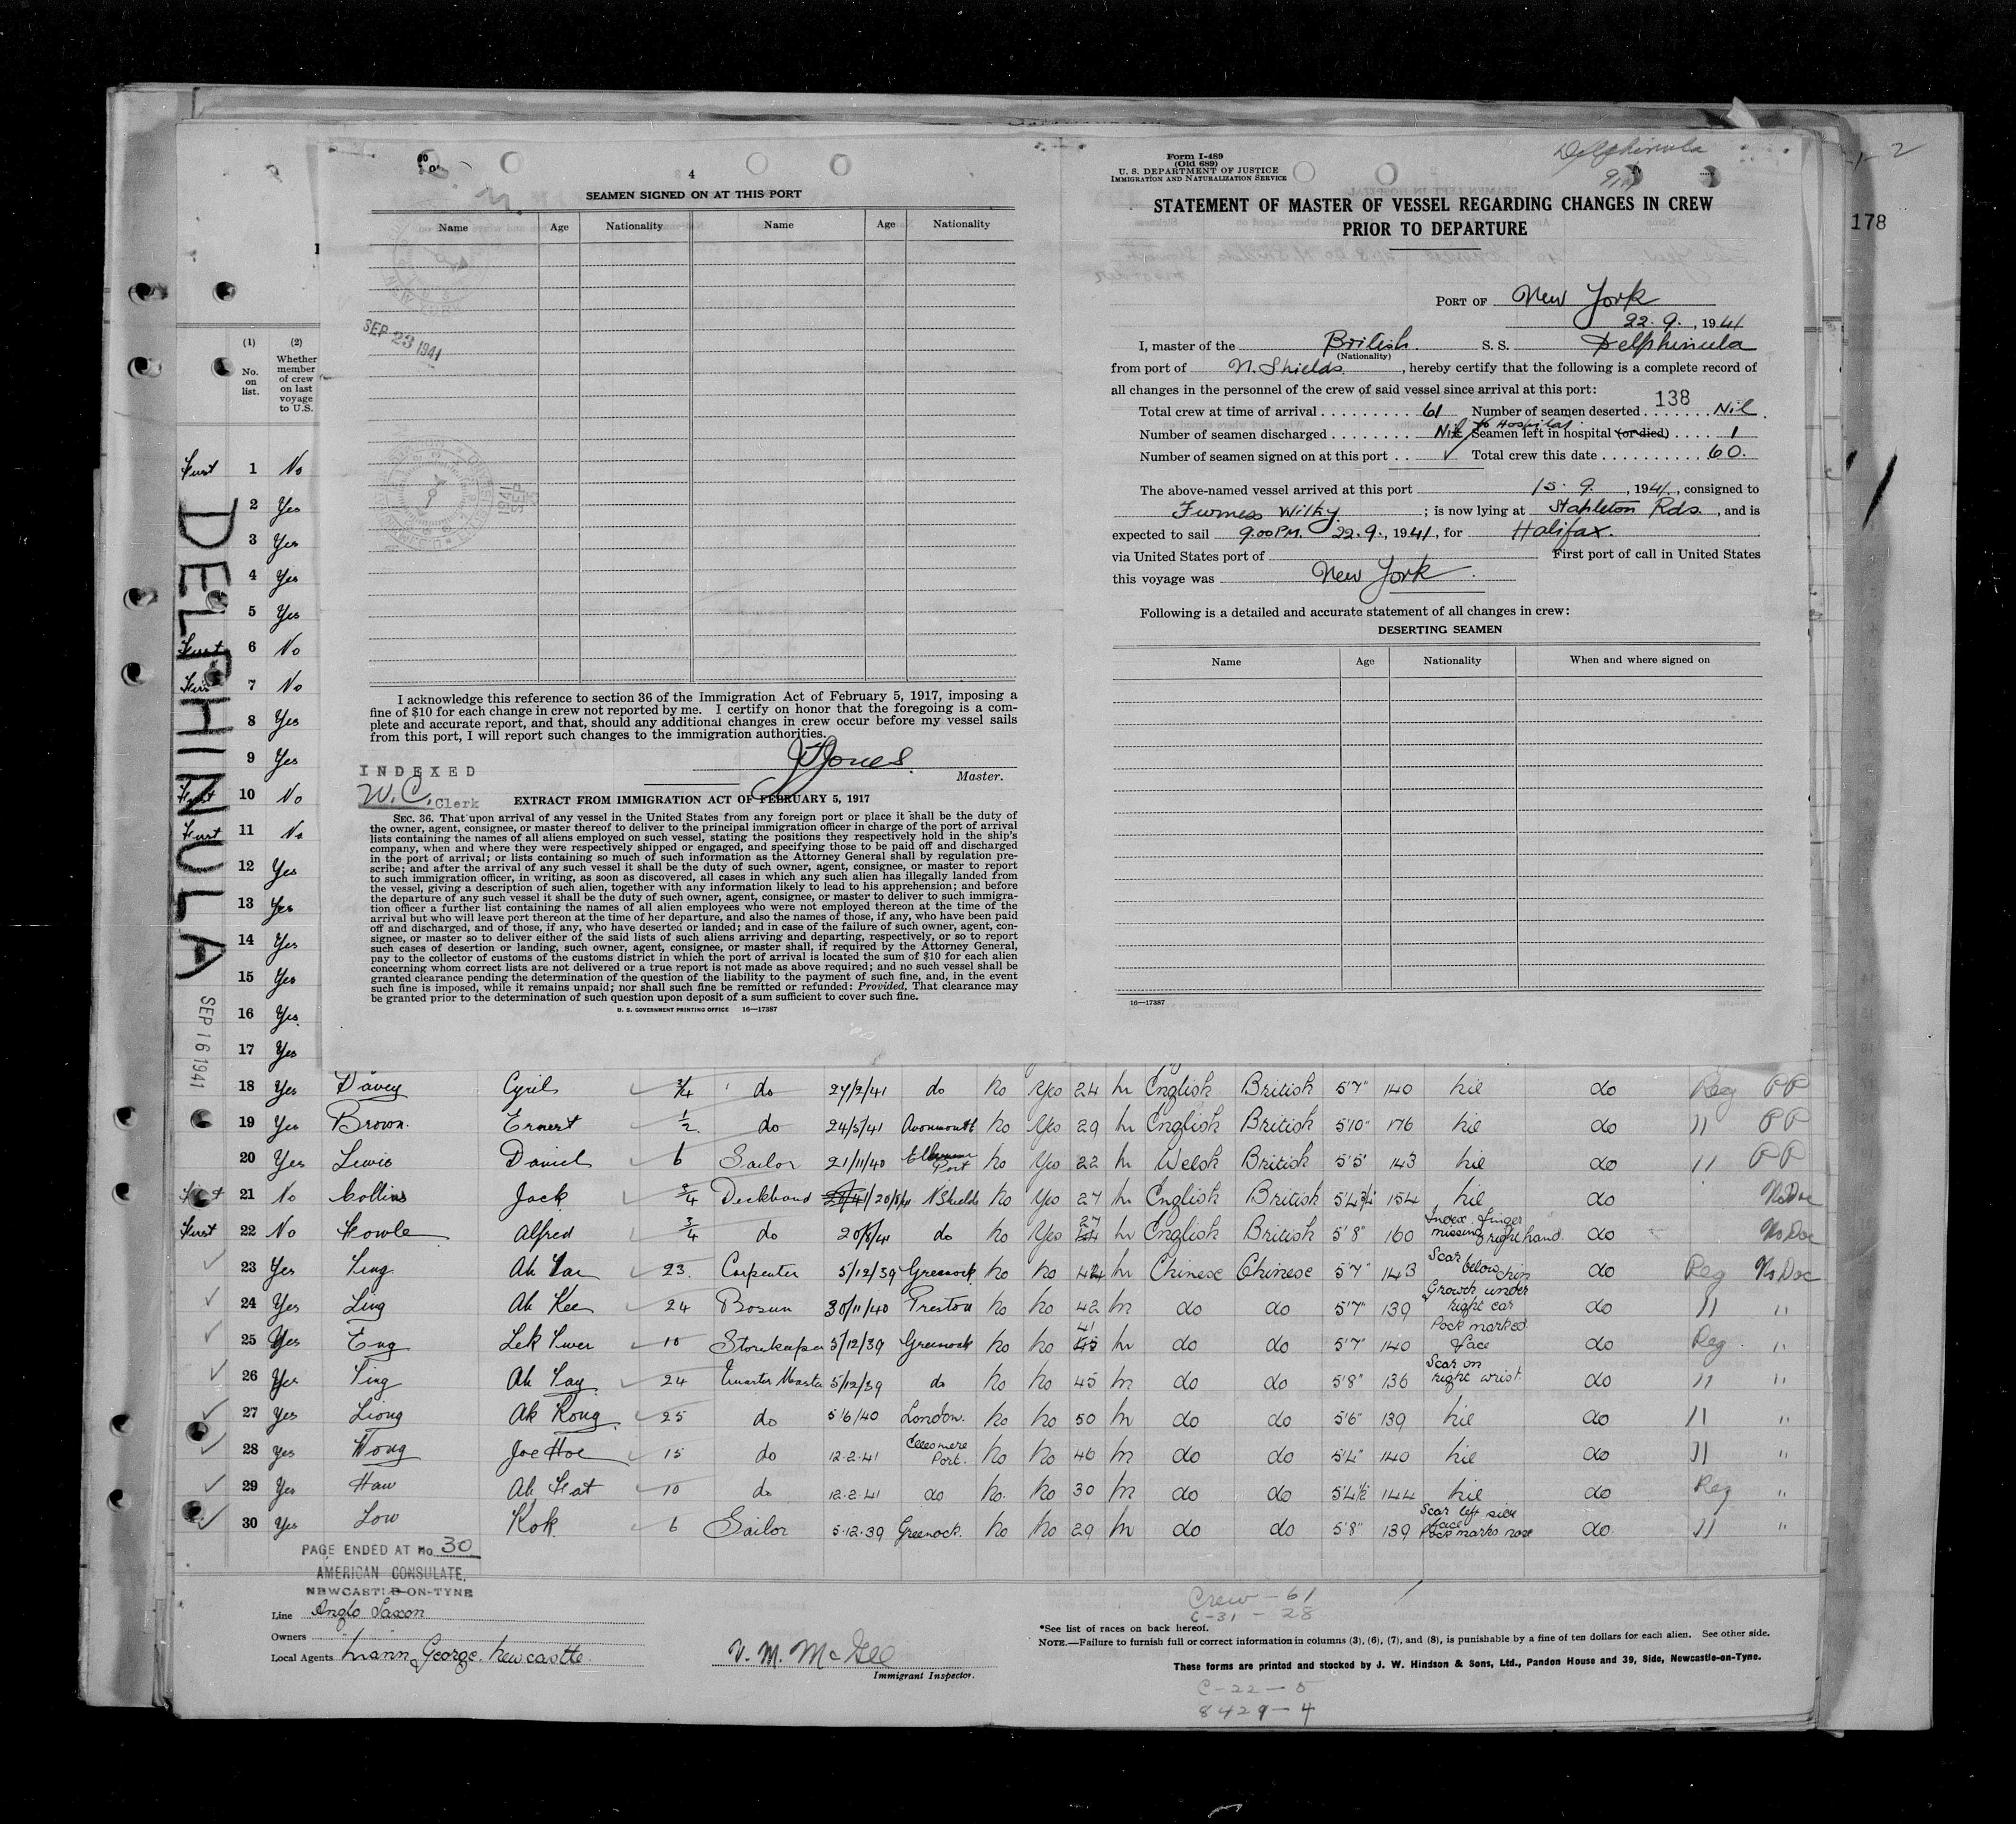 4
SEAMEN SIGNED ON AT THIS PORT
Name Age Nationality Name Age Nationality
SEP 23 1941
I acknowledge this reference to section 36 of the Immigration Act of February 5, 1917, imposing a
fine of $10 for each change in crew not reported by me. I certify on honor that the foregoing is a com-
plete and accurate report, and that, should any additional changes in crew occur before my vessel sails
from this port, I will report such changes to the immigration authorities.
Jones.
Master.
INDEXED
W.C. Clerk
EXTRACT FROM IMMIGRATION ACT OF FEBRUARY 5, 1917
SEC. 36. That upon arrival of any vessel in the United States from any foreign port or place it shall be the duty of
the owner, agent, consignee, or master thereof to deliver to the principal immigration officer in charge of the port of arrival
lists containing the names of all aliens employed on such vessel, stating the positions they respectively hold in the ship's
company, when and where they were respectively shipped or engaged, and specifying those to be paid off and discharged
in the port of arrival; or lists containing so much of such information as the Attorney General shall by regulation pre-
scribe; and after the arrival of any such vessel it shall be the duty of such owner, agent, consignee, or master to report
to such immigration officer, in writing, as soon as discovered, all cases in which any such alien has illegally landed from
the vessel, giving a description of such alien, together with any information likely to lead to his apprehension; and before
the departure of any such vessel it shall be the duty of such owner, agent, consignee, or master to deliver to such immigra-
tion officer a further list containing the names of all alien employees who were not employed thereon at the time of the
arrival but who will leave port thereon at the time of her departure, and also the names of those, if any, who have been paid
off and discharged, and of those, if any, who have deserted or landed; and in case of the failure of such owner, agent, con-
signee, or master so to deliver either of the said lists of such aliens arriving and departing, respectively, or so to report
such cases of desertion or landing, such owner, agent, consignee, or master shall, if required by the Attorney General,
pay to the collector of customs of the customs district in which the port of arrival is located the sum of $10 for each alien
concerning whom correct lists are not delivered or a true report is not made as above required; and no such vessel shall be
granted clearance pending the determination of the question of the liability to the payment of such fine, and, in the event
such fine is imposed, while it remains unpaid; nor shall such fine be remitted or refunded: Provided, That clearance may
be granted prior to the determination of such question upon deposit of a sum sufficient to cover such fine.
U. S. GOVERNMENT PRINTING OFFICE 16—17387
Form I-489
(Old 689)
U. S. DEPARTMENT OF JUSTICE
IMMIGRATION AND NATURALIZATION SERVICE
Delphinula
STATEMENT OF MASTER OF VESSEL REGARDING CHANGES IN CREW
PRIOR TO DEPARTURE
PORT OF New York
22. 9. , 1941
I, master of the British S. S. Delphinula
(Nationality)
from port of N. Shields , hereby certify that the following is a complete record of
all changes in the personnel of the crew of said vessel since arrival at this port:
138
Total crew at time of arrival 61 Number of seamen deserted Nil
to Hospital
Number of seamen discharged Nil Seamen left in hospital (or died) 1
Number of seamen signed on at this port ✓ Total crew this date 60.
The above-named vessel arrived at this port 15. 9. , 1941 , consigned to
Furness Withy ; is now lying at Stapleton Rds. , and is
expected to sail 9.00 PM. 22.9. , 1941 , for Halifax.
via United States port of First port of call in United States
this voyage was New York.
Following is a detailed and accurate statement of all changes in crew:
DESERTING SEAMEN
Name Age Nationality When and where signed on
16—17387
178
2
(1) (2)
No. on list. Whether member of crew on last voyage to U.S.
DELPHINULA
SEP 16 1941
First 1 No
2 Yes
3 Yes
4 Yes
5 Yes
First 6 No
First 7 No
8 Yes
9 Yes
First 10 No
First 11 No
12 Yes
13 Yes
14 Yes
15 Yes
16 Yes
17 Yes
18 Yes Davey Cyril ✓ 3/4 do 27/2/41 do No Yes 24 M English British 5'7" 140 Nil do Reg PP
19 Yes Brown. Ernest 1/2 do 24/5/41 Avonmouth No Yes 29 M English British 5'10" 176 Nil do " PP
20 Yes Lewis Daniel ✓ 6 Sailor 21/11/40 Port No Yes 22 M Welsh British 5'5" 143 Nil do " PP
First 21 No Collins Jack ✓ 3/4 Deckhand 20/8/41 N Shields No Yes 27 M English British 5'4¾" 154 Nil do No Doc
First 22 No Fowle Alfred 3/4 do 20/8/41 do No Yes 27 M English British 5'8" 160 Index finger missing right hand do No Doc
✓ 23 Yes Ting Ah ✓ 23 Carpenter 5/12/39 Greenock No No 44 M Chinese Chinese 5'7" 143 Scar below chin do Reg No Doc
✓ 24 Yes Ling Ah Kee ✓ 24 Bosun 30/11/40 Preston No No 42 M do do 5'7" 139 Growth under right ear do " "
✓ 25 Yes Eng Lek Swer ✓ 10 Storekeeper 5/12/39 Greenock No No 41 M do do 5'7" 140 Pock marked face do Reg "
✓ 26 Yes Ting Ah Lay ✓ 24 Quarter Master 5/12/39 do No No 45 M do do 5'8" 136 Scar on right wrist do " "
✓ 27 Yes Liong Ah Kong ✓ 25 do 5/6/40 London. No No 50 M do do 5'6" 139 Nil do " "
✓ 28 Yes Wong Joe Hoe ✓ 15 do 12.2.41 Ellesmere Port. No No 46 M do do 5'4" 140 Nil do " "
✓ 29 Yes Haw Ah Fat ✓ 10 do 12.2.41 do No No 30 M do do 5'4½" 144 Nil do Reg "
✓ 30 Yes Low Kok ✓ 6 Sailor 5.12.39 Greenock. No No 29 M do do 5'8" 139 Scar left side face Pock marks nose do " "
PAGE ENDED AT No 30
AMERICAN CONSULATE,
NEWCASTLE-ON-TYNE
Line Anglo Saxon
Owners " "
Local Agents Mann, George. Newcastle.
V. M. McGee
Immigrant Inspector.
Crew — 61
C-31 — 28
*See list of races on back hereof.
NOTE.—Failure to furnish full or correct information in columns (3), (6), (7), and (8), is punishable by a fine of ten dollars for each alien. See other side.
These forms are printed and stocked by J. W. Hindson & Sons, Ltd., Pandon House and 39, Side, Newcastle-on-Tyne.
C-22 — 5
8429 — 4